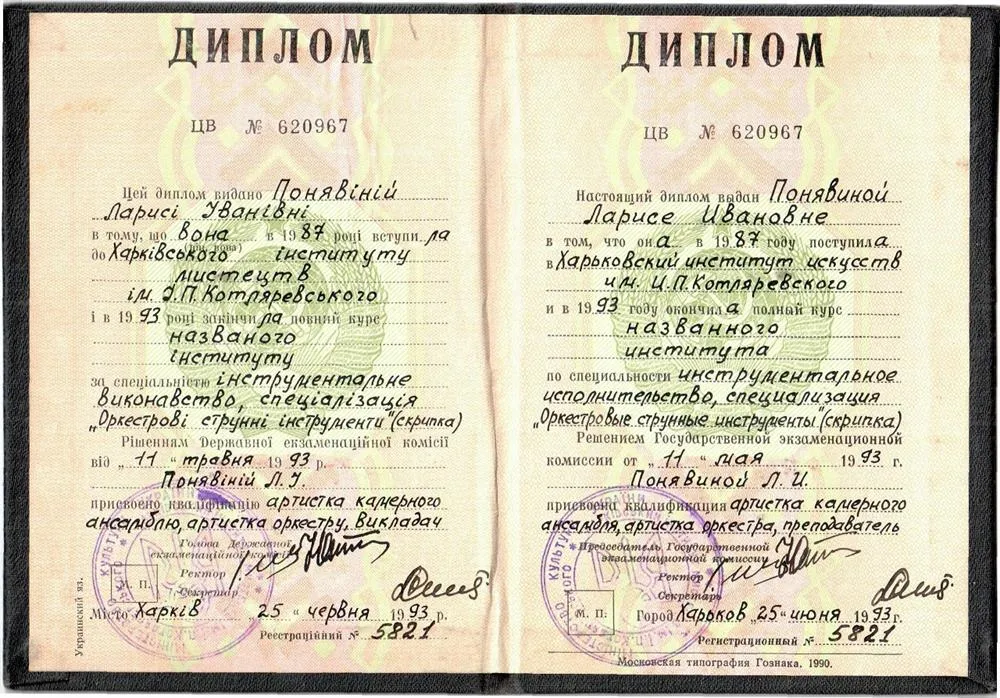 ДИПЛОМ
ЦВ № 620967
Цей диплом видано Понявіній
Ларисі Іванівні
в тому, що вона в 1987 році вступила
(він, вона)
до Харківського інституту
мистецтв
ім. І.П.Котляревського
і в 1993 році закінчила повний курс
названого
інституту
за спеціальністю інструментальне
виконавство, спеціалізація
„Оркестрові струнні інструменти"(скрипка)
Рішенням Державної екзаменаційної комісії
від „11" травня 1993 р.
Понявіній Л.І.
присвоєно кваліфікацію артистка камерного
ансамблю, артистка оркестру, Викладач
Голова Державної
екзаменаційної комісії
Ректор
М. П.
Секретар
Місто Харків „25" червня 1993 р.
Реєстраційний № 5821
Украинский яз.
ДИПЛОМ
ЦВ № 620967
Настоящий диплом выдан Понявиной
Ларисе Ивановне
в том, что она в 1987 году поступила
в Харьковский институт искусств
им. И.П.Котляревского
и в 1993 году окончила полный курс
названного
института
по специальности инструментальное
исполнительство, специализация
„Оркестровые струнные инструменты"(скрипка)
Решением Государственной экзаменационной
комиссии от „11" мая 1993 г.
Понявиной Л. И.
присвоена квалификация артистка камерного
ансамбля, артистка оркестра, преподаватель
Председатель Государственной
экзаменационной комиссии
Ректор
Секретарь
М. П.
Город Харьков „25" июня 1993 г.
Регистрационный № 5821
Московская типография Гознака. 1990.